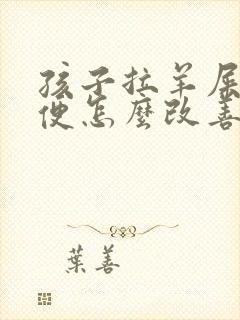 孩子拉羊屎
便怎麼改善
葉善